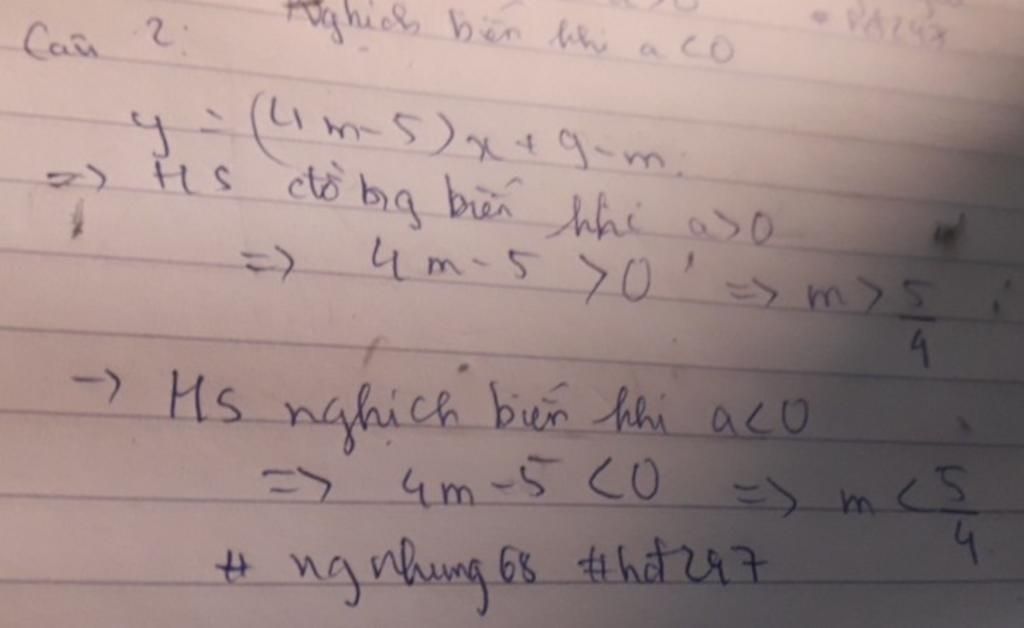 Nghịch biến khi a<0
Câu 2:
y = (4m-5)x + 9-m.
=> HS đồng biến khi a>0
=> 4m-5 >0 => m > 5/4
-> HS nghịch biến khi a<0
=> 4m-5 <0 => m < 5/4
# ngnhung68 #hđ247